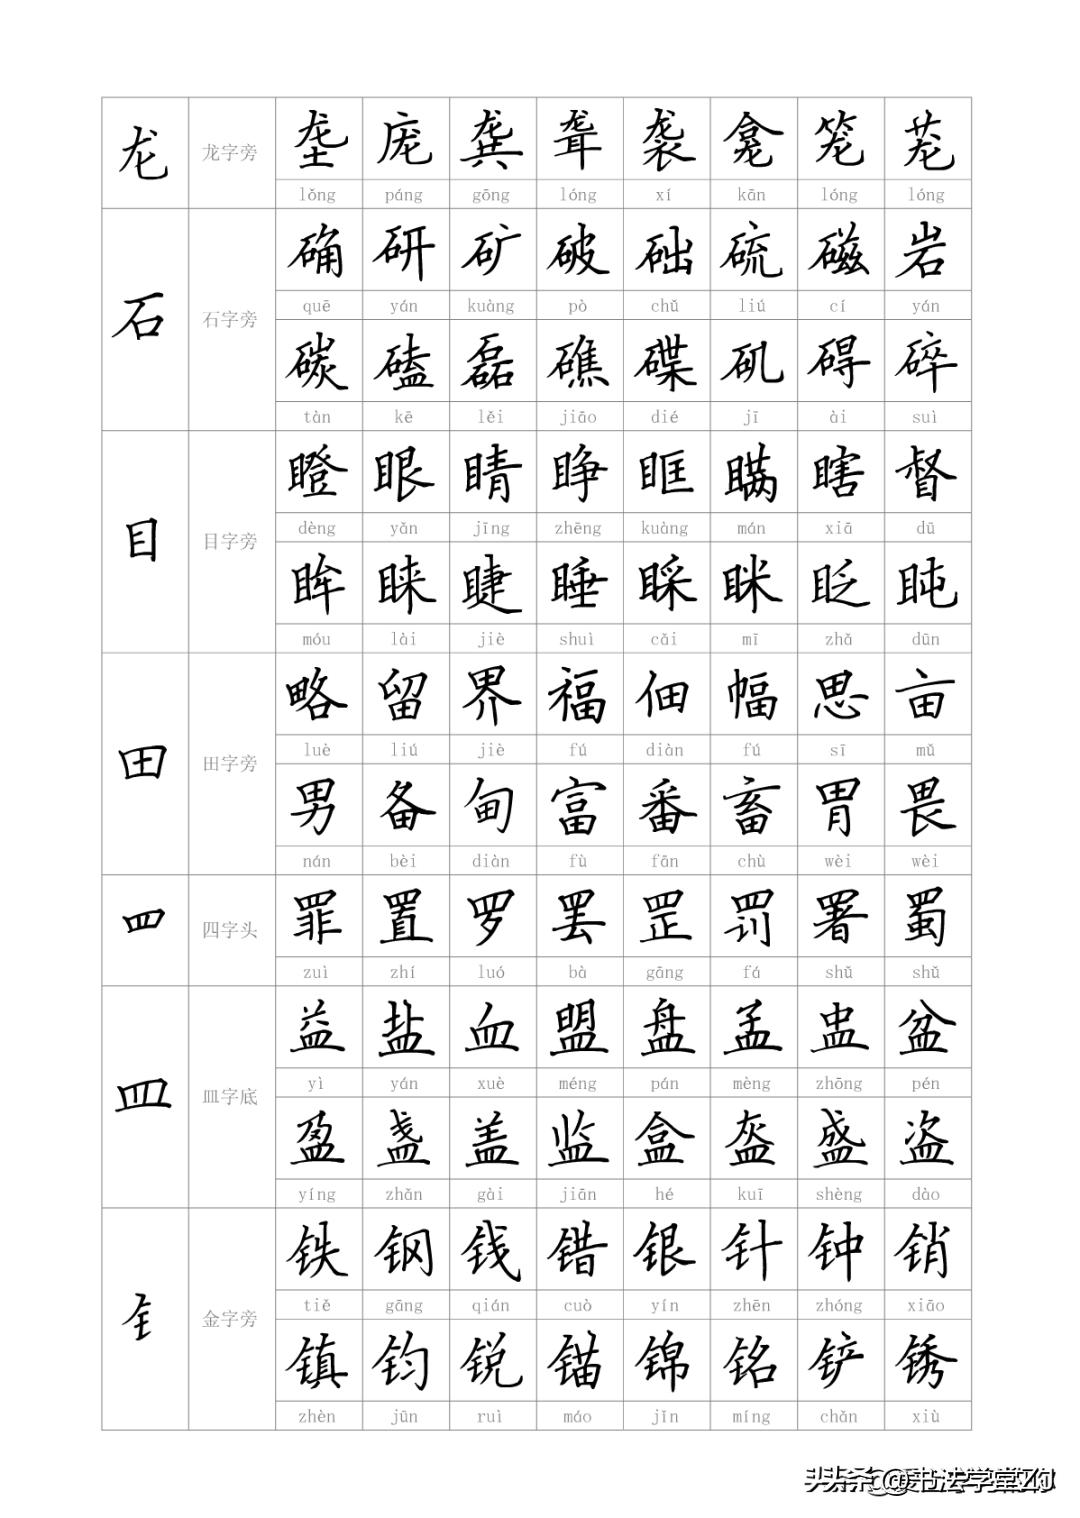 龙 龙字旁 垄 庞 龚 聋 袭 龛 笼 茏
lǒng páng gōng lóng xí kān lóng lóng
石 石字旁 确 研 矿 破 础 硫 磁 岩
quē yán kuàng pò chǔ liú cí yán
碳 磕 磊 礁 碟 矶 碍 碎
tàn kē lěi jiāo dié jī ài suì
目 目字旁 瞪 眼 睛 睁 眶 瞒 瞎 督
dèng yǎn jīng zhēng kuàng mán xiā dū
眸 睐 睫 睡 睬 眯 眨 盹
móu lài jiè shuì cǎi mī zhǎ dūn
田 田字旁 略 留 界 福 佃 幅 思 亩
luè liú jiè fú diàn fú sī mǔ
男 备 甸 富 番 畜 胃 畏
nán bèi diàn fù fān chù wèi wèi
罒 四字头 罪 置 罗 罢 罡 罚 署 蜀
zuì zhí luó bà gāng fá shǔ shǔ
皿 皿字底 益 盐 血 盟 盘 孟 盅 盆
yì yán xuè méng pán mèng zhōng pén
盈 盏 盖 监 盒 盔 盛 盗
yíng zhǎn gài jiān hé kuī shèng dào
钅 金字旁 铁 钢 钱 错 银 针 钟 销
tiě gāng qián cuò yín zhēn zhóng xiāo
镇 钧 锐 锚 锦 铭 铲 锈
zhèn jūn ruì máo jǐn míng chǎn xiù
头条@爱书法学堂ZJ